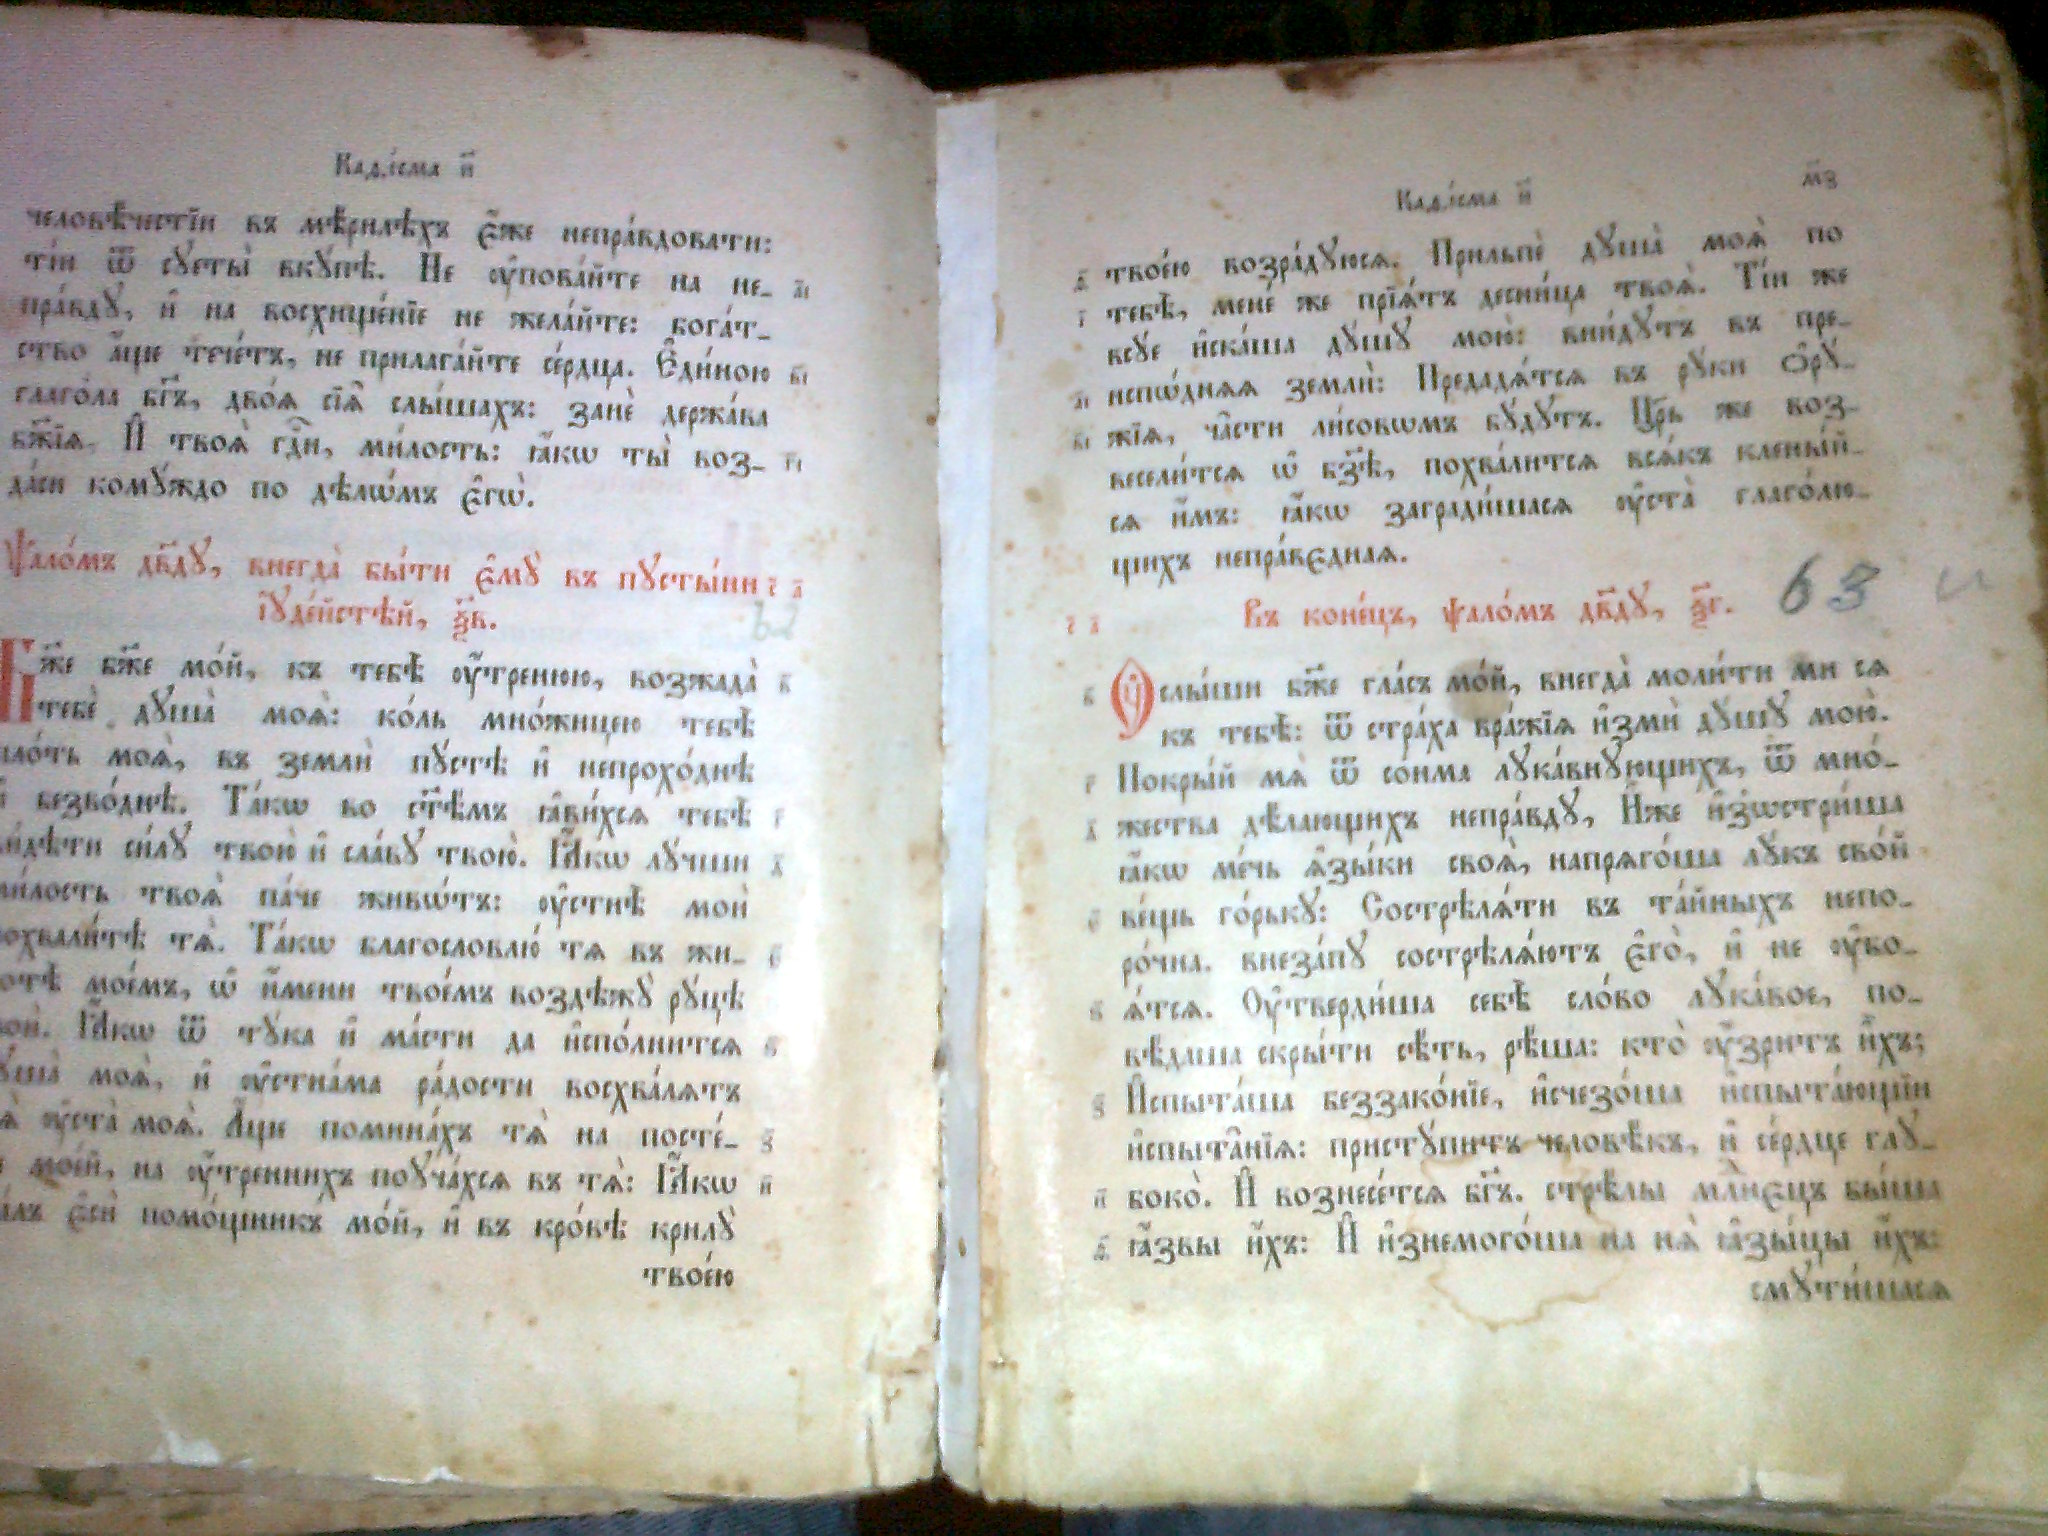 Каѳі́сма и҃
человѣ́честїи въ мѣ́рилѣхъ є҆́же непра́вдовати:
ті́и ѿ сꙋеты̀ вкꙋ́пѣ. Не ᲂу҆пова́йте на не- а҃і
пра́вдꙋ, и҆ на восхище́нїе не жела́йте: бога́т-
ство а҆́ще тече́тъ, не прилага́йте се́рдца. Є҆ди́ною в҃і
глаго́ла бг҃ъ, двоѧ́ сїѧ҄ слы́шахъ: занѐ держа́ва
бж҃їѧ. И҆ твоѧ̀ гдⷭ҇и, ми́лость: ꙗ҆́кѡ ты̀ воз- г҃і
да́си комꙋ́ждо по дѣлѡ́мъ є҆гѡ̀.
Ѱало́мъ дв҃дꙋ, внегда̀ бы́ти є҆мꙋ̀ въ пꙋсты́ни а҃
і҆ꙋде́йстѣй, ѯ҃в.
Бж҃е бж҃е мо́й, къ тебѣ̀ ᲂу҆́тренюю, возжада̀ в҃
тебѐ дꙋша̀ моѧ̀: ко́ль мно́жицею тебѣ̀
пло́ть моѧ̀, въ землѝ пꙋ́стѣ и҆ непрохо́днѣ
и҆ безво́днѣ. Та́кѡ во ст҃ѣ́мъ ꙗ҆ви́хсѧ тебѣ̀ г҃
ви́дѣти си́лꙋ твою̀ и҆ сла́вꙋ твою̀. Ꙗ҆́кѡ лꙋ́чши д҃
ми́лость твоѧ̀ па́че живѡ́тъ: ᲂу҆стнѣ̀ моѝ
похвали́тѣ тѧ̀. Та́кѡ благословлю́ тѧ въ жи- є҃
вотѣ̀ мое́мъ, ѡ҆ и҆́мени твое́мъ воздѣ́жꙋ рꙋ́цѣ
моѝ. Ꙗ҆́кѡ ѿ тꙋ́ка и҆ ма́сти да и҆спо́лнитсѧ ѕ҃
дꙋша̀ моѧ̀, и҆ ᲂу҆стна́ма ра́дости восхва́лѧтъ
тѧ̀ ᲂу҆ста̀ моѧ̀. А҆́ще помина́хъ тѧ̀ на посте́- з҃
ли мое́й, на ᲂу҆́тренних поꙋча́хсѧ въ тѧ̀: Ꙗ҆́кѡ и҃
бы́лъ є҆сѝ помо́щникъ мо́й, и҆ въ кро́вѣ крилꙋ̀
твое́ю
Каѳі́сма и҃ м҃з
ѳ҃ твое́ю возра́дꙋюсѧ. Прильпѐ дꙋша̀ моѧ̀ по
і҃ тебѣ̀, мене́ же прїѧ́тъ десни́ца твоѧ̀. Ті́и же
всꙋ́е и҆ска́ша дꙋ́шꙋ мою̀: вни́дꙋтъ въ пре-
а҃і испѡ́днѧѧ землѝ: Предадѧ́тсѧ въ рꙋ́ки ѻ҆рꙋ́-
в҃і жїѧ, ча҄сти ли́совѡмъ бꙋ́дꙋтъ. Цр҃ь же воз-
весели́тсѧ ѡ҆ бз҃ѣ, похва́литсѧ всѧ́къ кленый-
сѧ и҆́мъ: ꙗ҆́кѡ загради́шасѧ ᲂу҆ста̀ глаго́лю-
щихъ непра́вєднаѧ.
а҃ Въ коне́цъ, ѱало́мъ дв҃дꙋ, ѯ҃г. 63
в҃ Оу҆слы́ши бж҃е гла́съ мо́й, внегда̀ моли́ти ми сѧ
къ тебѣ̀: ѿ стра́ха вра́жїѧ и҆змѝ дꙋ́шꙋ мою̀.
г҃ Покры́й мѧ̀ ѿ со́нма лꙋка́внꙋющихъ, ѿ мно́-
д҃ жества дѣ́лающихъ непра́вдꙋ, И҆̀же и҆зѡстри́ша
ꙗ҆́кѡ ме́чь ѧ҆зы́ки своѧ̀, напрѧго́ша лꙋ́къ сво́й
є҃ ве́щь го́рькꙋ: Состреѣлѧ́ти въ та́йныхъ непо-
ро́чна. внеза́пꙋ сострѣлѧ́ютъ є҆го̀, и҆ не ᲂу҆бо-
ѕ҃ ѧ́тсѧ. Оу҆тверди́ша себѣ̀ сло́во лꙋка́вое, по-
вѣ́даша скры́ти сѣ́ть, рѣ́ша: кто̀ ᲂу҆́зритъ и҆̀хъ;
з҃ И҆спыта́ша беззако́нїе, и҆счезо́ша и҆спыта́ющїи
и҆спыта҄нїѧ: пристꙋ́питъ человѣ́къ, и҆ се́рдце глꙋ-
и҃ боко̀. И҆ вознесе́тсѧ бг҃ъ. стрѣ́лы младе́нєцъ бы́ша
ѳ҃ ꙗ҆́звы и҆́хъ: И҆ и҆знемого́ша на нѧ̀ ꙗ҆зы́цы и҆́хъ:
смꙋти́шасѧ